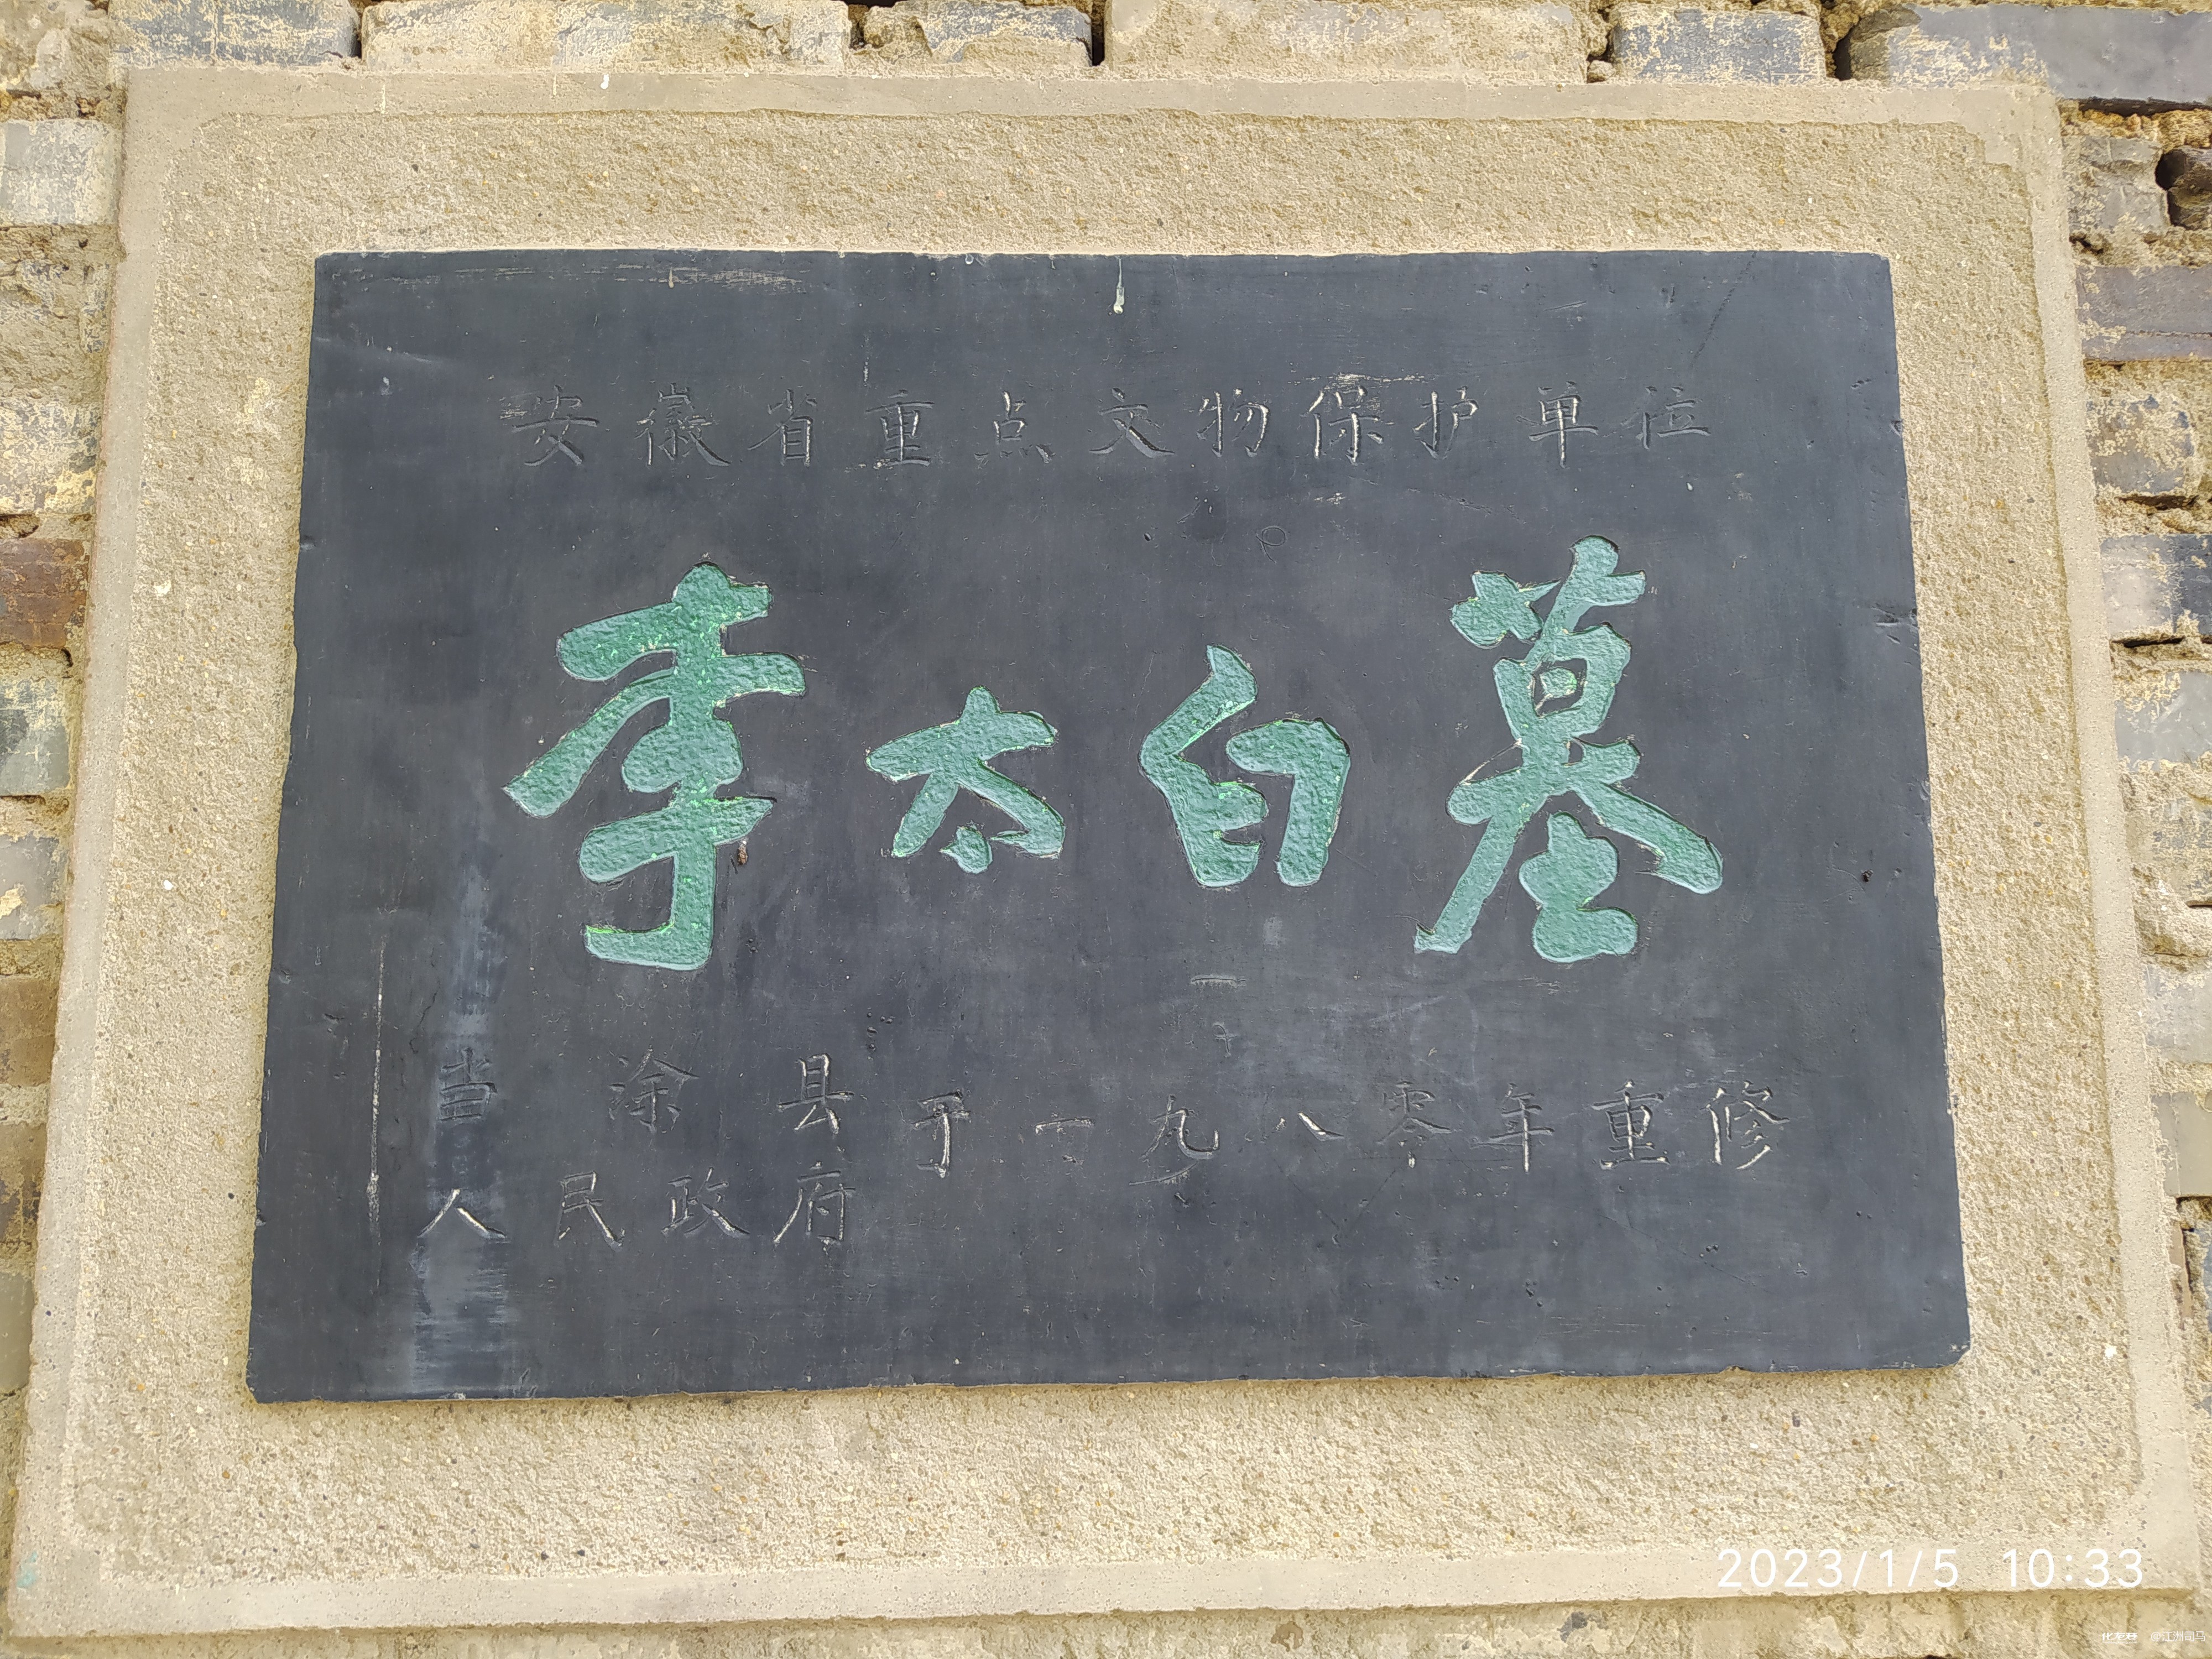 安徽省重点文物保护单位
李太白墓
当涂县
人民政府
于一九八零年重修
2023/1/5 10:33
@江洲司马